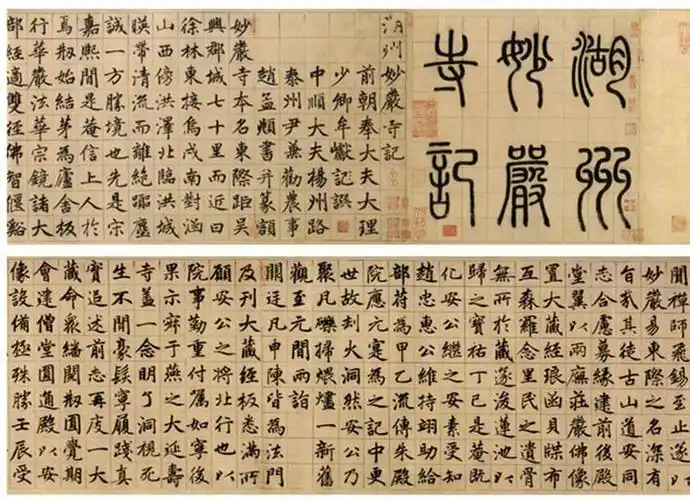 湖州
妙嚴
寺記
湖州妙嚴寺記
前朝奉大夫大理
少卿牟巘記譔
中順大夫揚州路
泰州尹兼勸農事
趙孟頫書并篆額
妙嚴寺本名東際距吳
興郡城七十里而近曰
徐林東接烏戍南對涵
山西傍洪澤北臨洪城
映帶清流而離絕囂塵
誠一方勝境也先是宋
嘉熙間是菴信上人於
焉剏始結茅為廬舍板
行華嚴法華宗鏡諸大
部經適雙徑佛智偃谿
聞禪師飛錫至止遂以
妙嚴易東際之名深有
旨哉其徒古山道安同
志合慮募緣建前後殿
堂翼以兩廡莊嚴佛像
置大藏經琅函貝牒布
互森羅念里民之遺骨
無所於藏遂浚蓮池以
歸之寶祐丁巳是菴既
化安公繼之安素受知
趙忠惠公維持翊助給
部符為甲乙流傳朱殿
院應元寔為之記中更
世故刧火洞然安公乃
聚凡礫掃煨燼一新舊
觀至元間兩詣
闕廷凡申陳皆為法門
及刊大藏經板悉滿所
願安公之將北行也以
院事勤重付囑如寧後
果示寂于燕之大延壽
寺盖一念明了洞視死
生不間豪髮寧履踐真
實追述前志再庋一大
藏命眾繙閱剏圓覺期
會建僧堂圓通殿以至
像設備極殊勝壬辰受